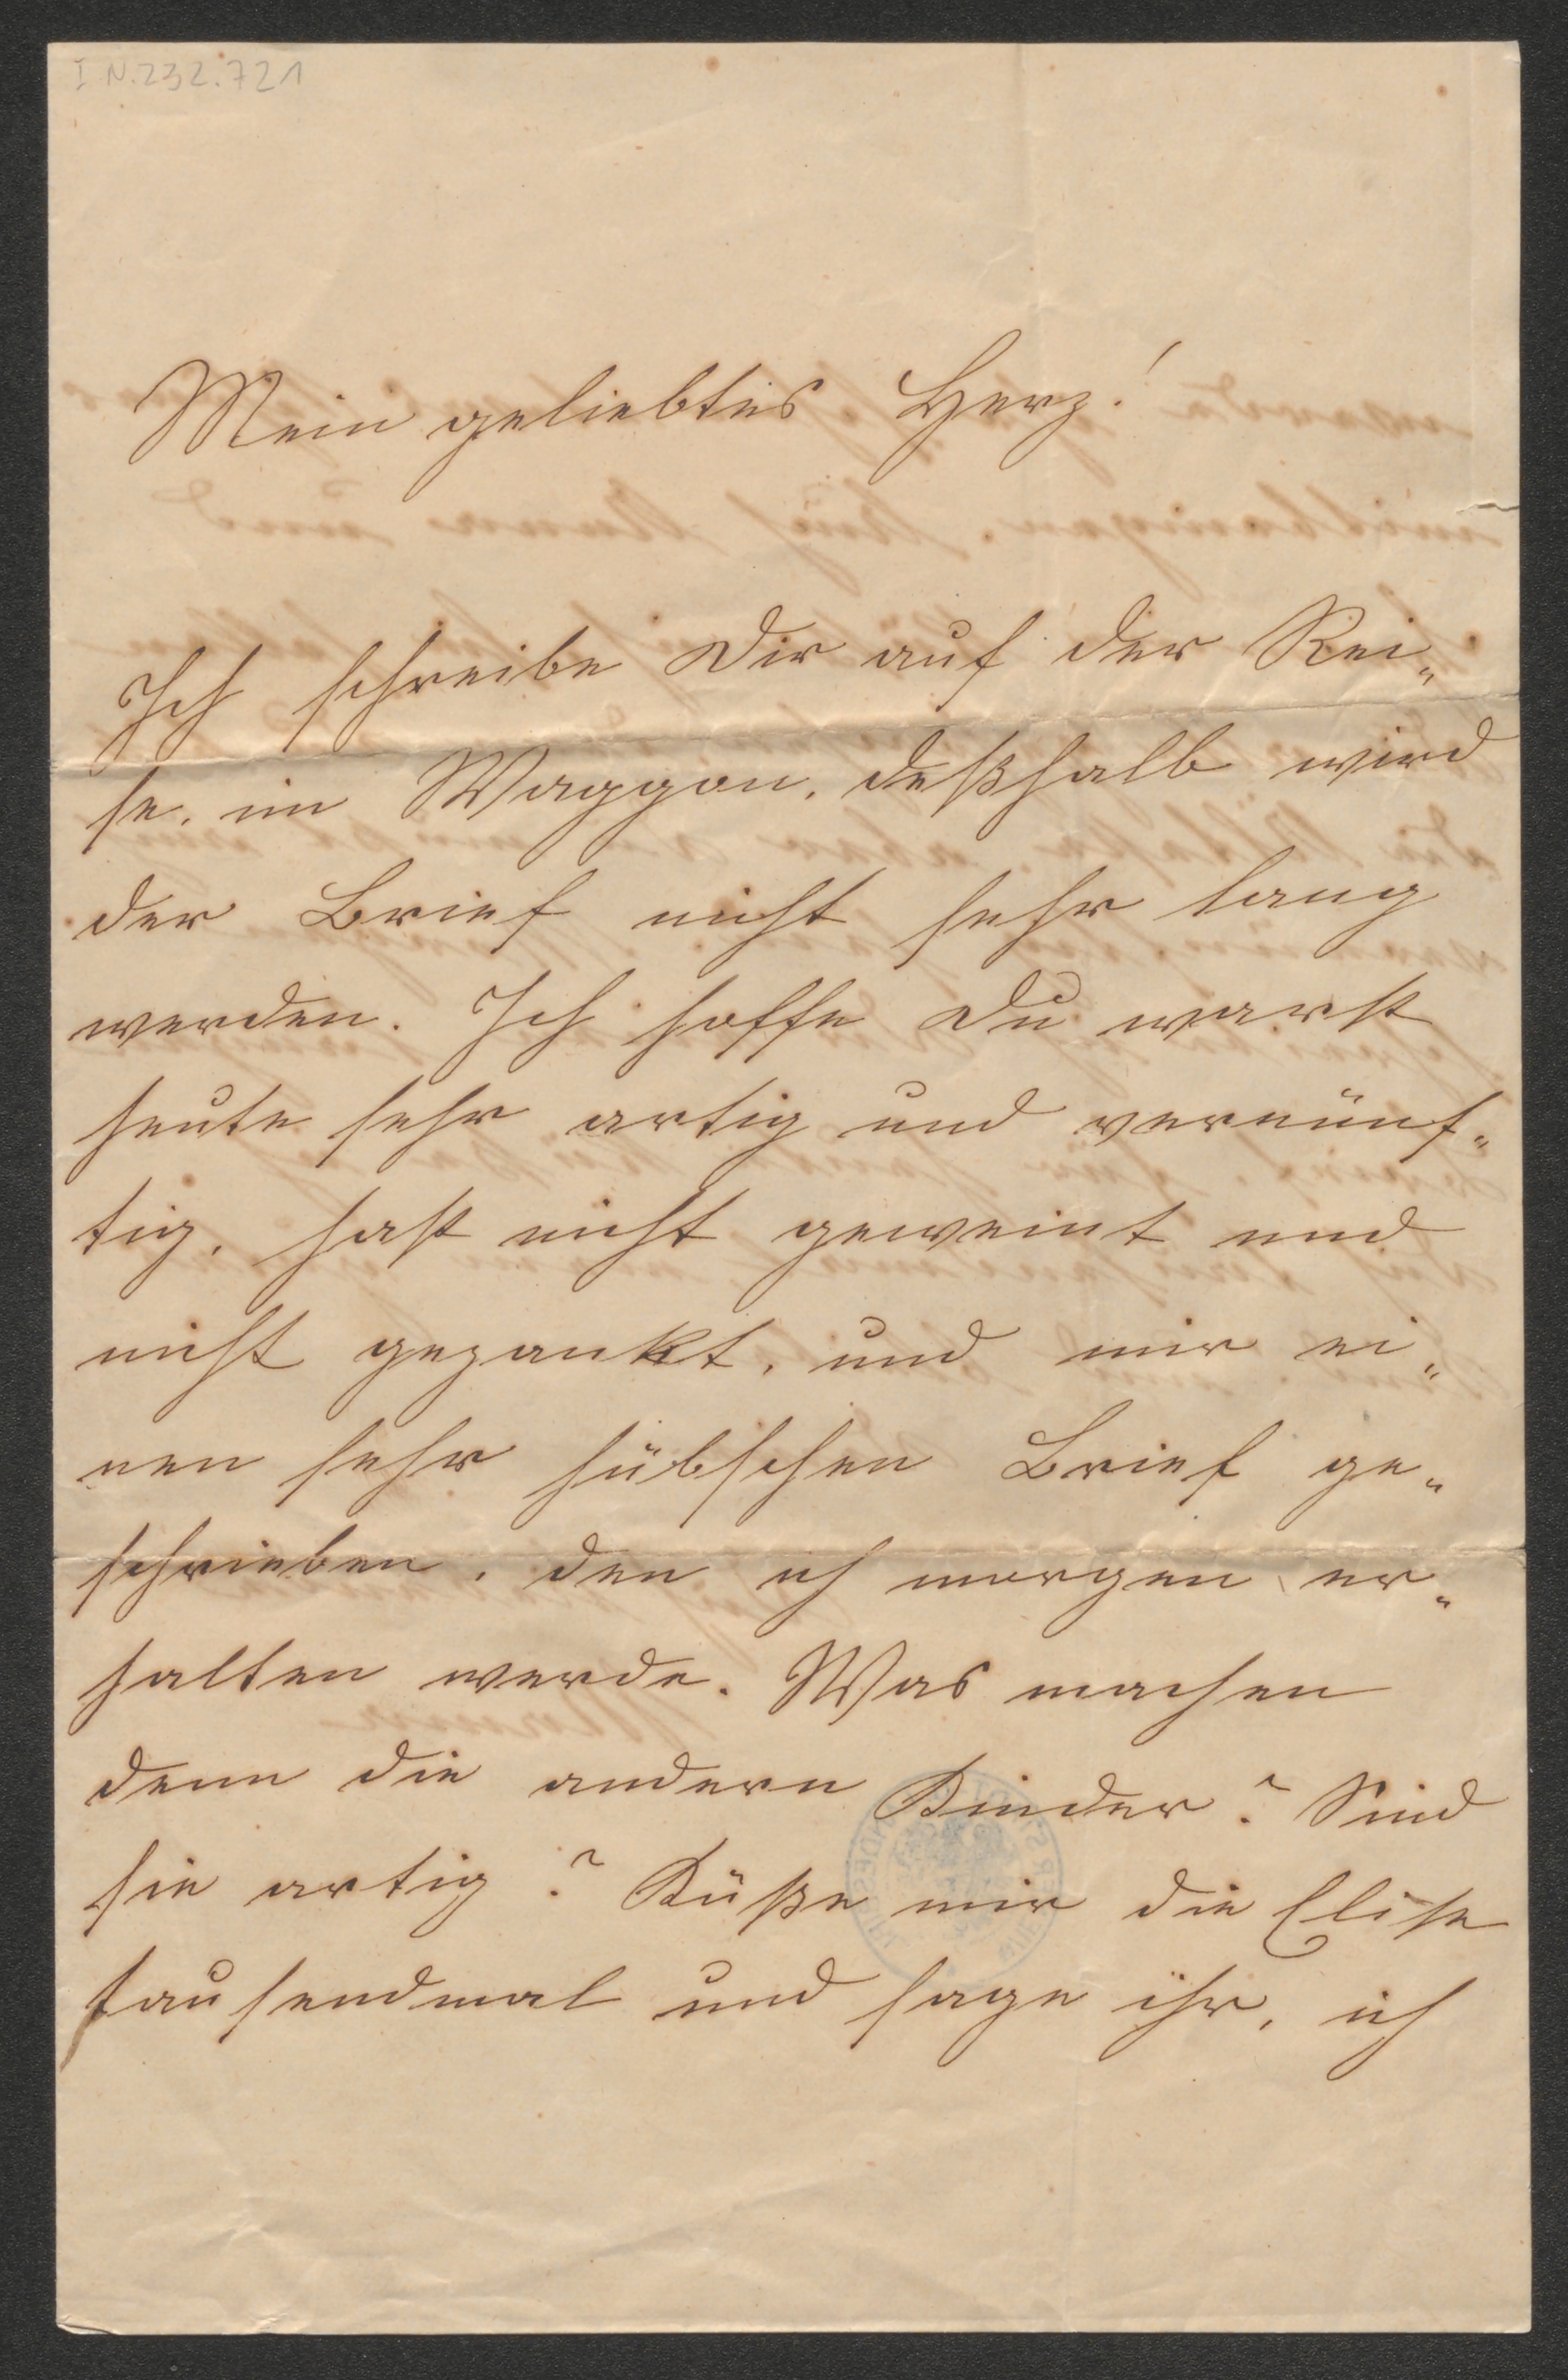 I N.232.721
Mein geliebtes Herz!
Ich schreibe Dir auf der Rei-
se, im Waggon, deßhalb wird
der Brief nicht sehr lang
werden. Ich hoffe Du warst
heute sehr artig und vernünf-
tig, hast nicht geweint und
nicht gezankt, und mir ei-
nen sehr hübschen Brief ge-
schrieben, den ich morgen er-
halten werde. Was machen
denn die andern Kinder? Sind
sie artig? Küße mir die Elise
tausendmal und sage ihr, ich